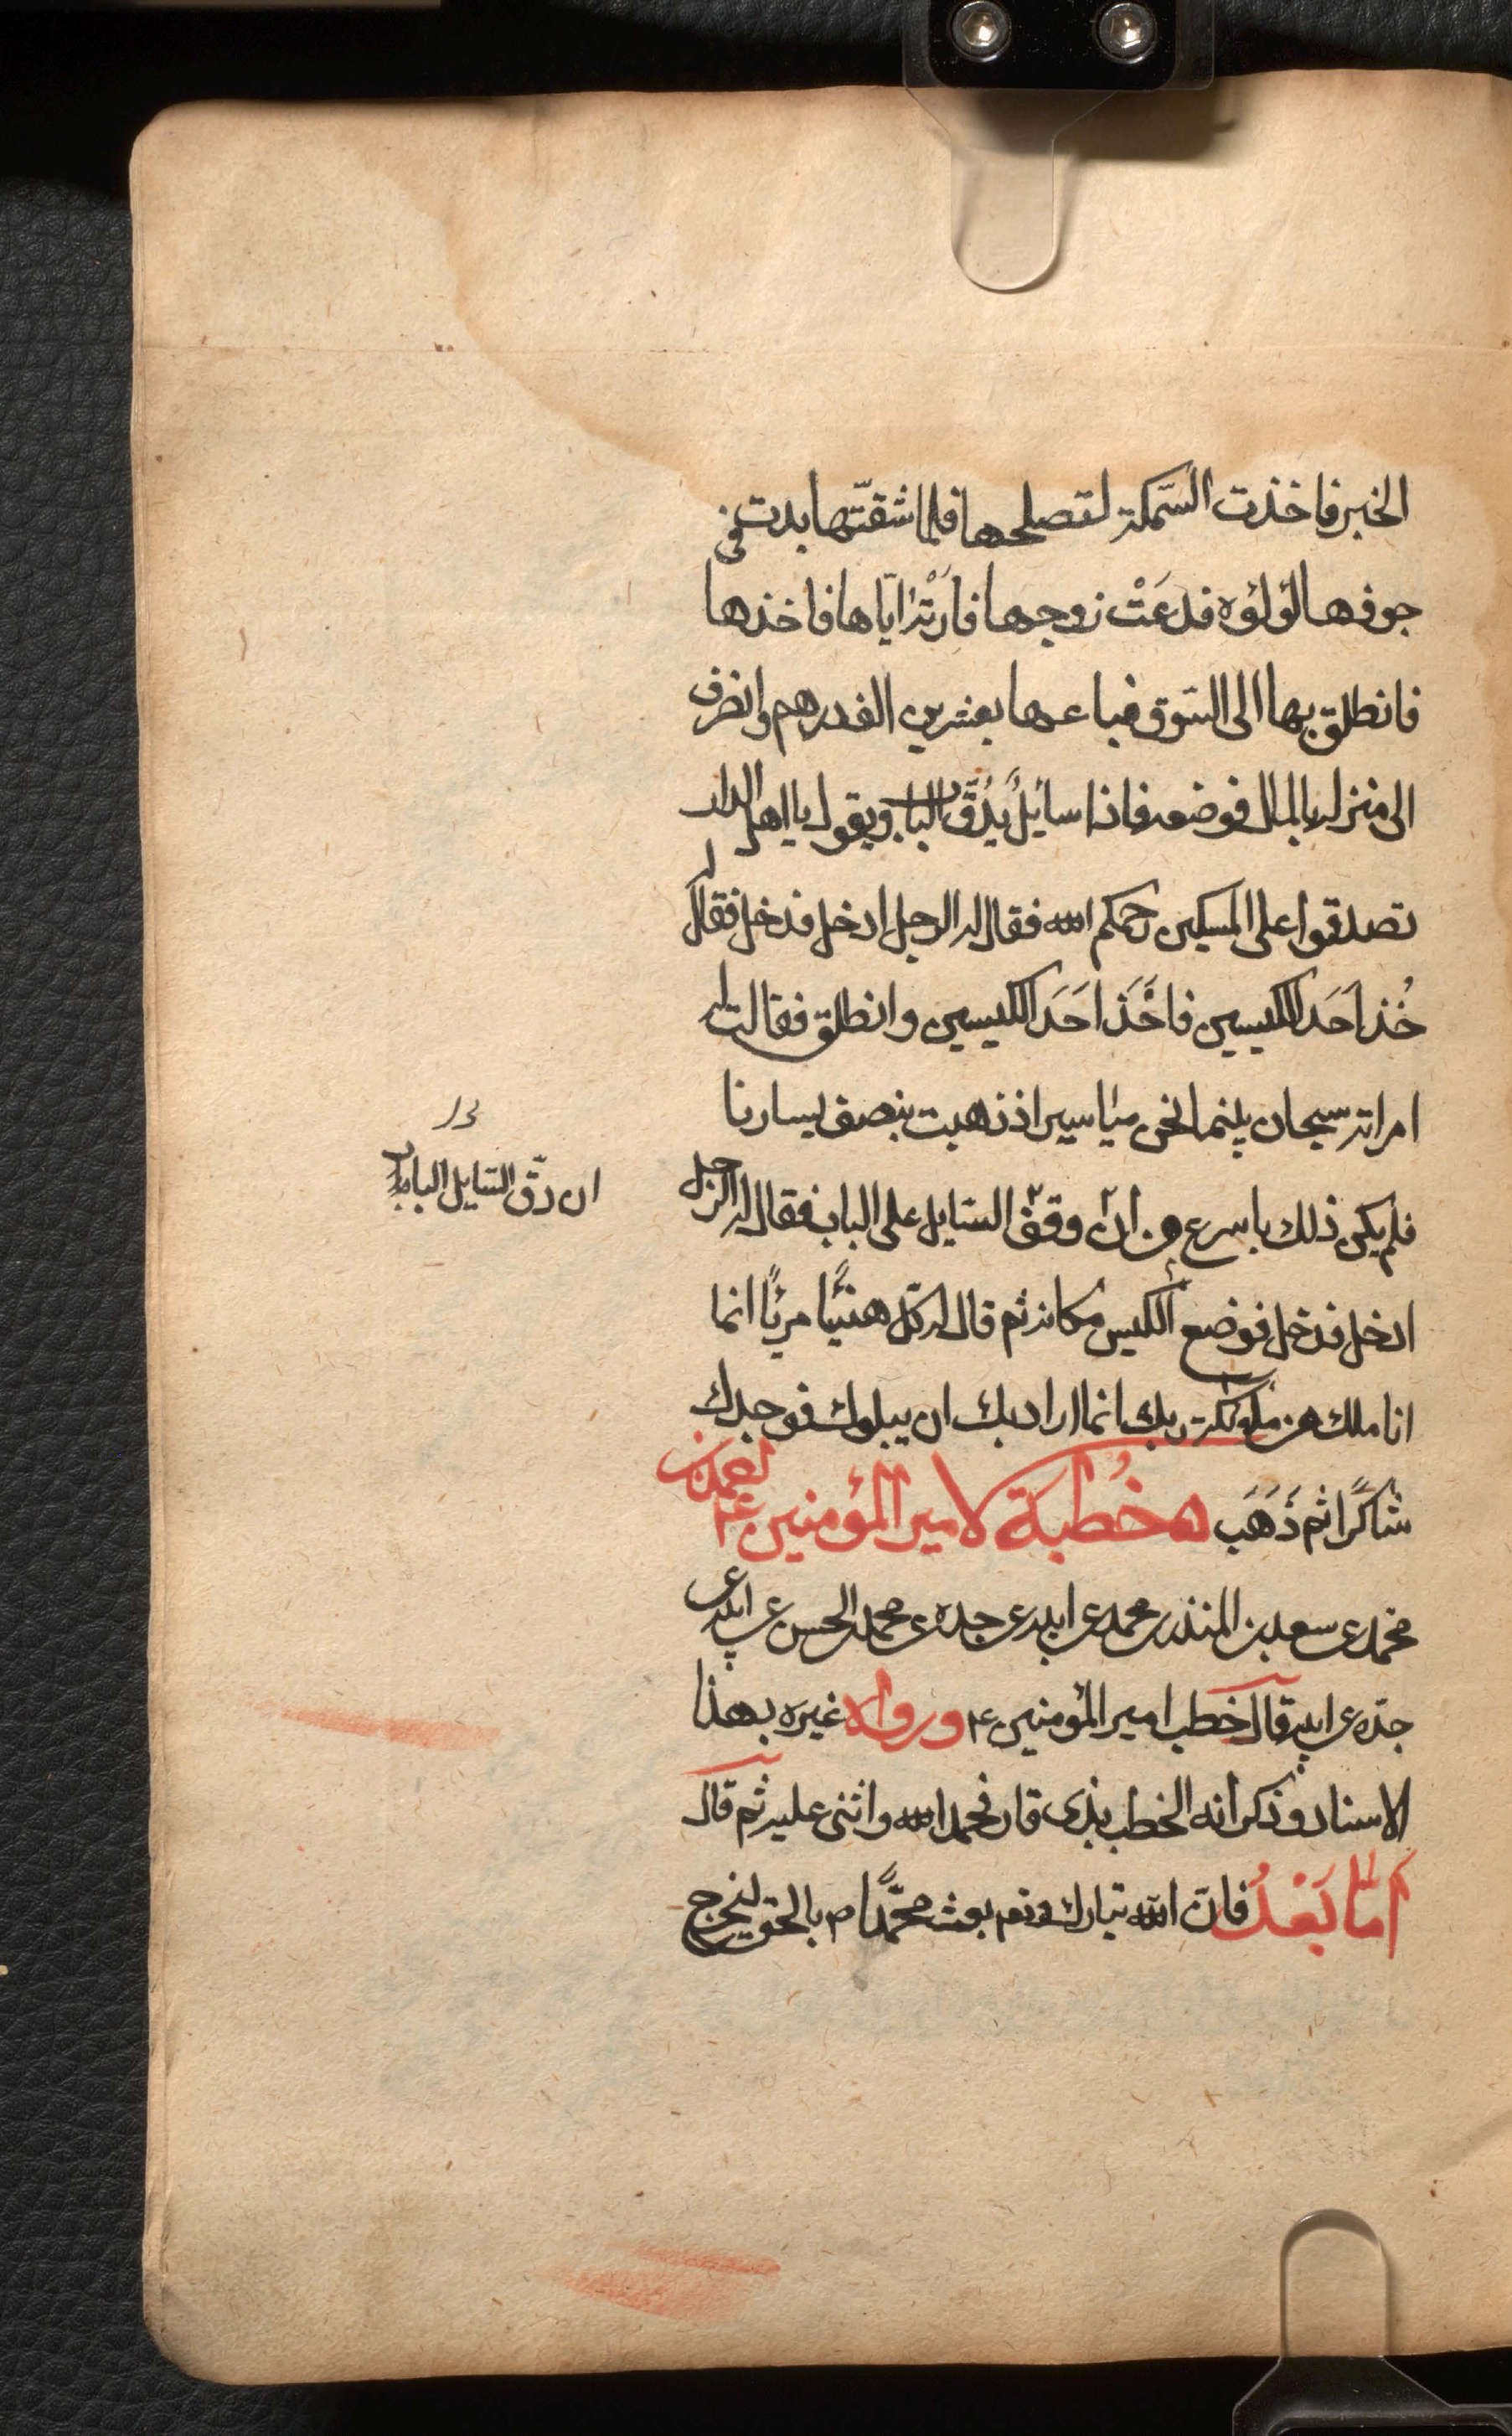 الخبر فاخذت السّمكة لتصلحها فلما شقّتها بدت في
جوفها لؤلؤه فدعَتْ زوجها فارَتْه ايّاها فاخذها
فانطلق بها الى السّوق فباعها بعشرين الف درهم وانصرف
الى منزله بالمال فوضعه فاذا سايلٌ يدُقّ الباب ويقول يا اهل الدار
تصدقوا على المسكين رحمكم الله فقال له الرجل ادخل فدخل فقال له
خُذ احَد الكيسين فاخَذ احَد الكيسين وانطلق فقالت له
امراته سبحان الله بينما نحن مياسير اذ ذهبت بنصف يسارنا
فلم يكن ذلك باسرع من ان وقف السّايل على الباب فقال له الرّجل
ادخل فدخل فوضع الكيس مكانه ثم قال له كل هنيئًا مريئًا انما
انا ملك من ملئكة ربك انما اراد بك ان يبلوك فوجدك
شاكرًا ثم ذَهَبَ ه خُطبة لامير المؤمنين ع احمد بن
محمد عن سعد بن المنذر بن محمد عن ابيه عن جده عن محمد بن الحسين عن ابيه عن
جدّه عن ابيه قال خطب امير المؤمنين ع ورواه غيره بهذا
الاسناد وذكر انه الخطب بذى قار فحمد الله واثنى عليه ثم قال
امّا بَعْدُ فانّ الله تبارك وتعـ بعث محمّدًا ص بالحق ليخرج
ان دقّ السّايل الباب